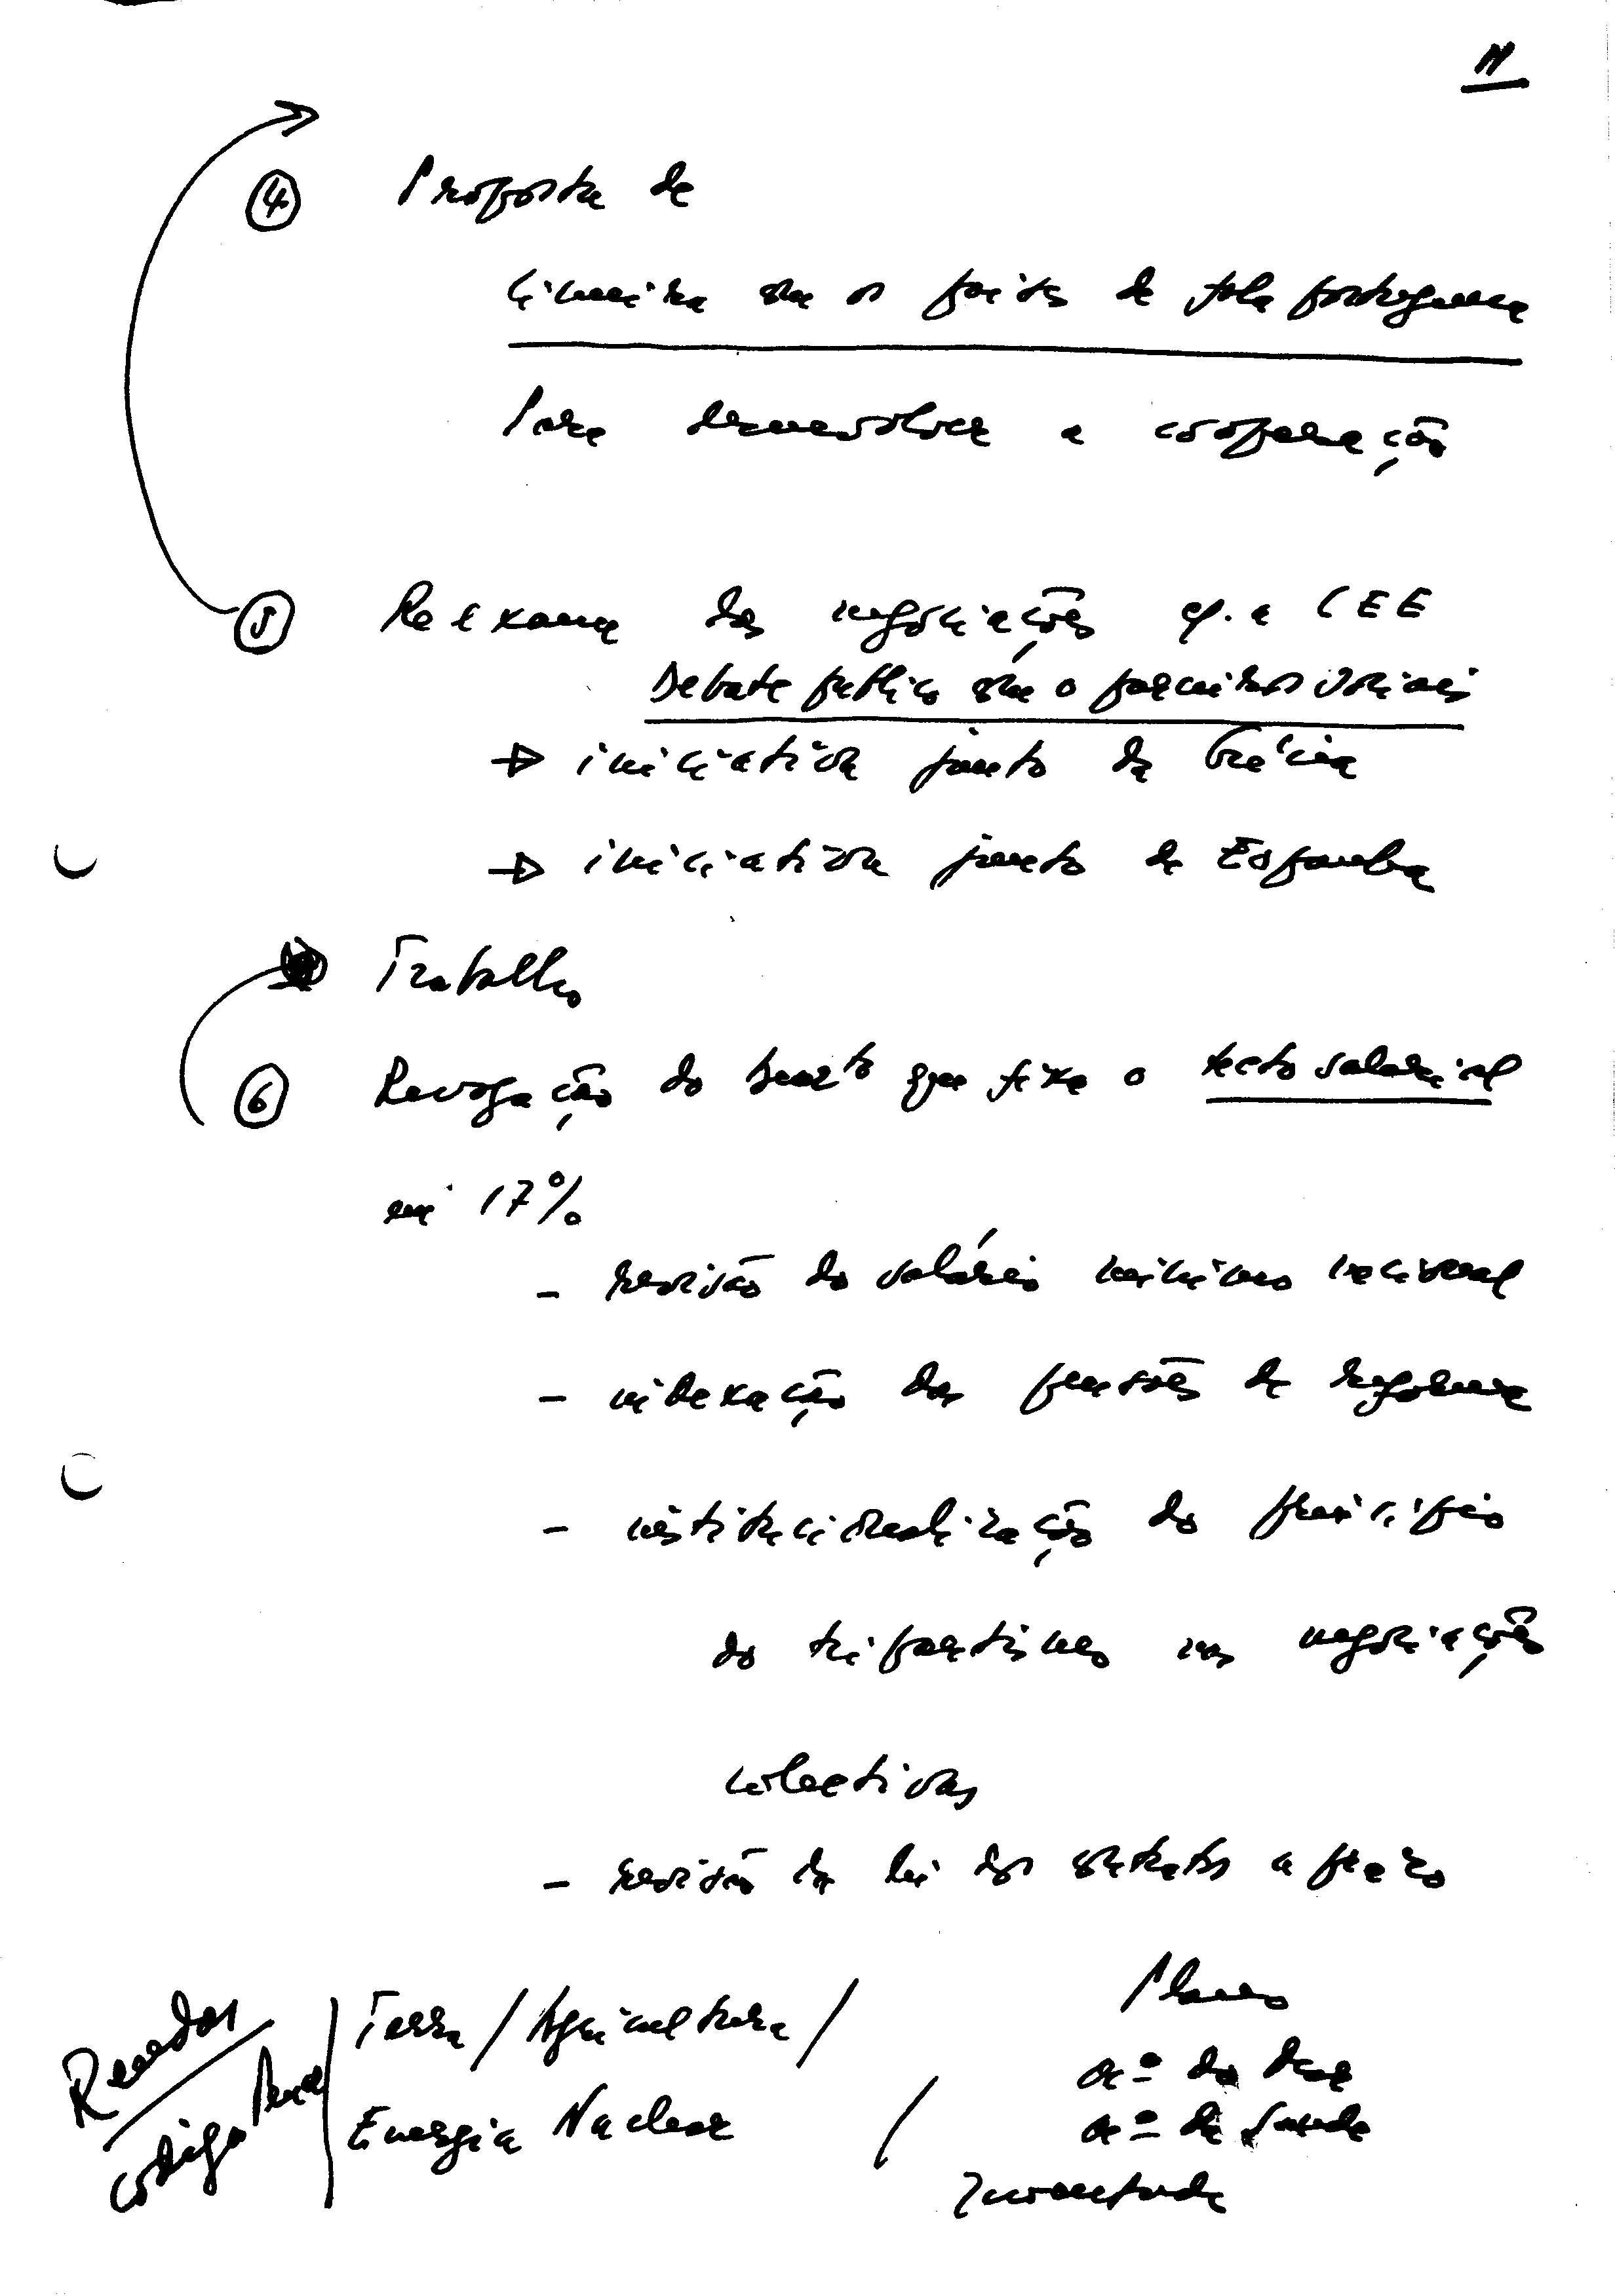 11
④ Proposta de
Cimeira com os países de fala portuguesa
Para desenvolver a cooperação
⑤ Reexame das negociações c/. a CEE
Debate público com o parceiros sociais
→ iniciativa junto da Grécia
→ iniciativa junto de Espanha
Trabalho
⑥ Revogação do decrto que fixa o tecto salarial
em 17%
- revisão do salário mínimo nacional
- indexação das pensões de
- institucionalização do princípio
do tripartismo nas negociações
colectivas
- revisão da lei dos contratos a prazo
Rendas
Código Penal
Terra / Agricultura /
Energia Nuclear /
Plano
do Mar
da Saúde
Juventude